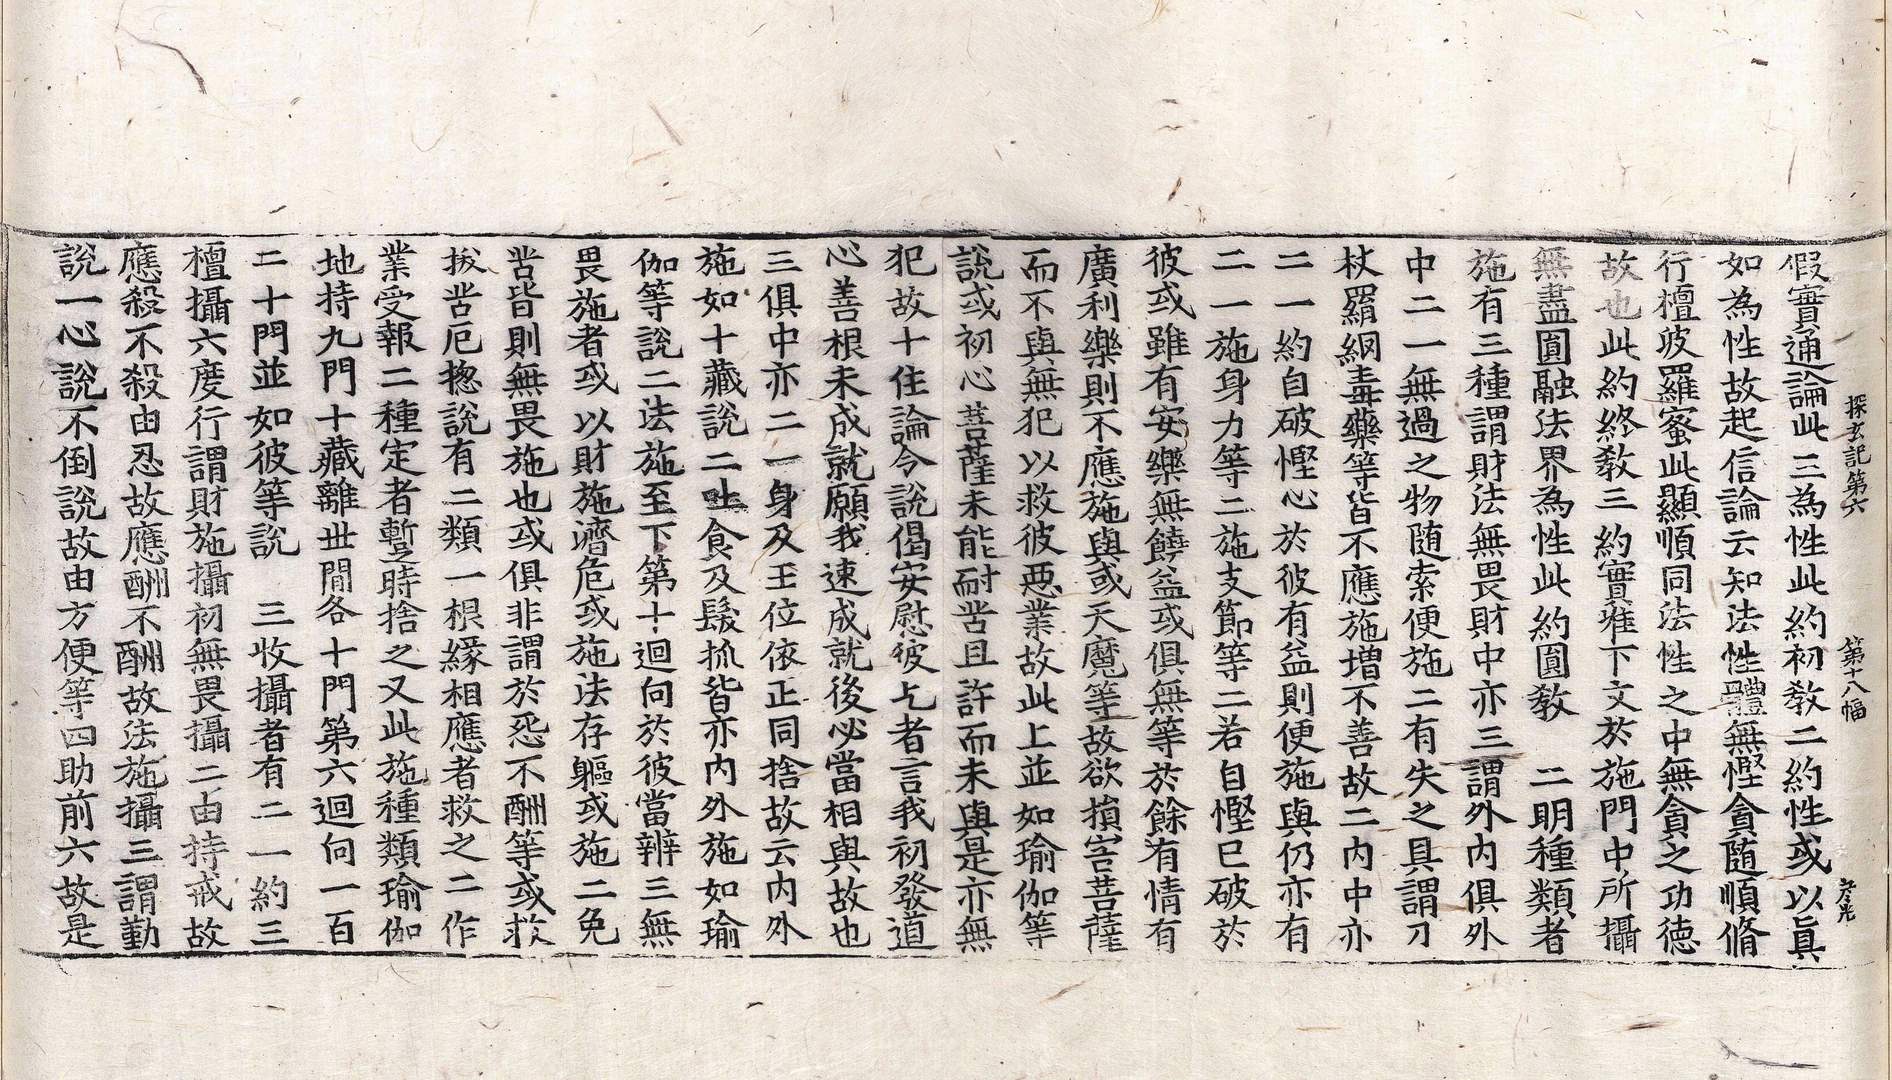 探玄記第六 第十八幅 孝兆
假實通論此三為性此約初教二約性或以真
如為性故起信論云知法性體無慳貪随順脩
行檀波羅蜜此顯順同法性之中無貪之功徳
故也此約終教三約實唯下文於施門中所攝
無盡圓融法界為性此約圓教 二明種類者
施有三種謂財法無畏財中亦三謂外内俱外
中二一無過之物随索便施二有失之具謂刀
杖羅網毒藥等皆不應施増不善故二内中亦
二一約自破慳心於彼有益則便施與仍亦有
二一施身力等二施支節等二若自慳已破於
彼或雖有安樂無饒益或俱無等於餘有情有
廣利樂則不應施與或天魔等故欲損害菩薩
而不與無犯以救彼惡業故此上並如瑜伽等
說或初心菩薩未能耐苦且許而未與是亦無
犯故十住論今說偈安慰彼乞者言我初發道
心善根未成就願我速成就後必當相與故也
三俱中亦二一身及王位依正同捨故云内外
施如十藏說二吐食及髮抓皆亦内外施如瑜
伽等說二法施至下第十迴向於彼當辨三無
畏施者或以財施濟危或施法存軀或施二免
苦皆則無畏施也或俱非謂於怨不酬等或救
拔苦厄揔說有二類一根緣相應者救之二作
業受報二種定者暫時捨之又此施種類瑜伽
地持九門十藏離世間各十門第六迴向一百
二十門並如彼等說 三收攝者有二一約三
檀攝六度行謂財施攝初無畏攝二由持戒故
應殺不殺由忍故應酬不酬故法施攝三謂勤
說一心說不倒說故由方便等四助前六故是